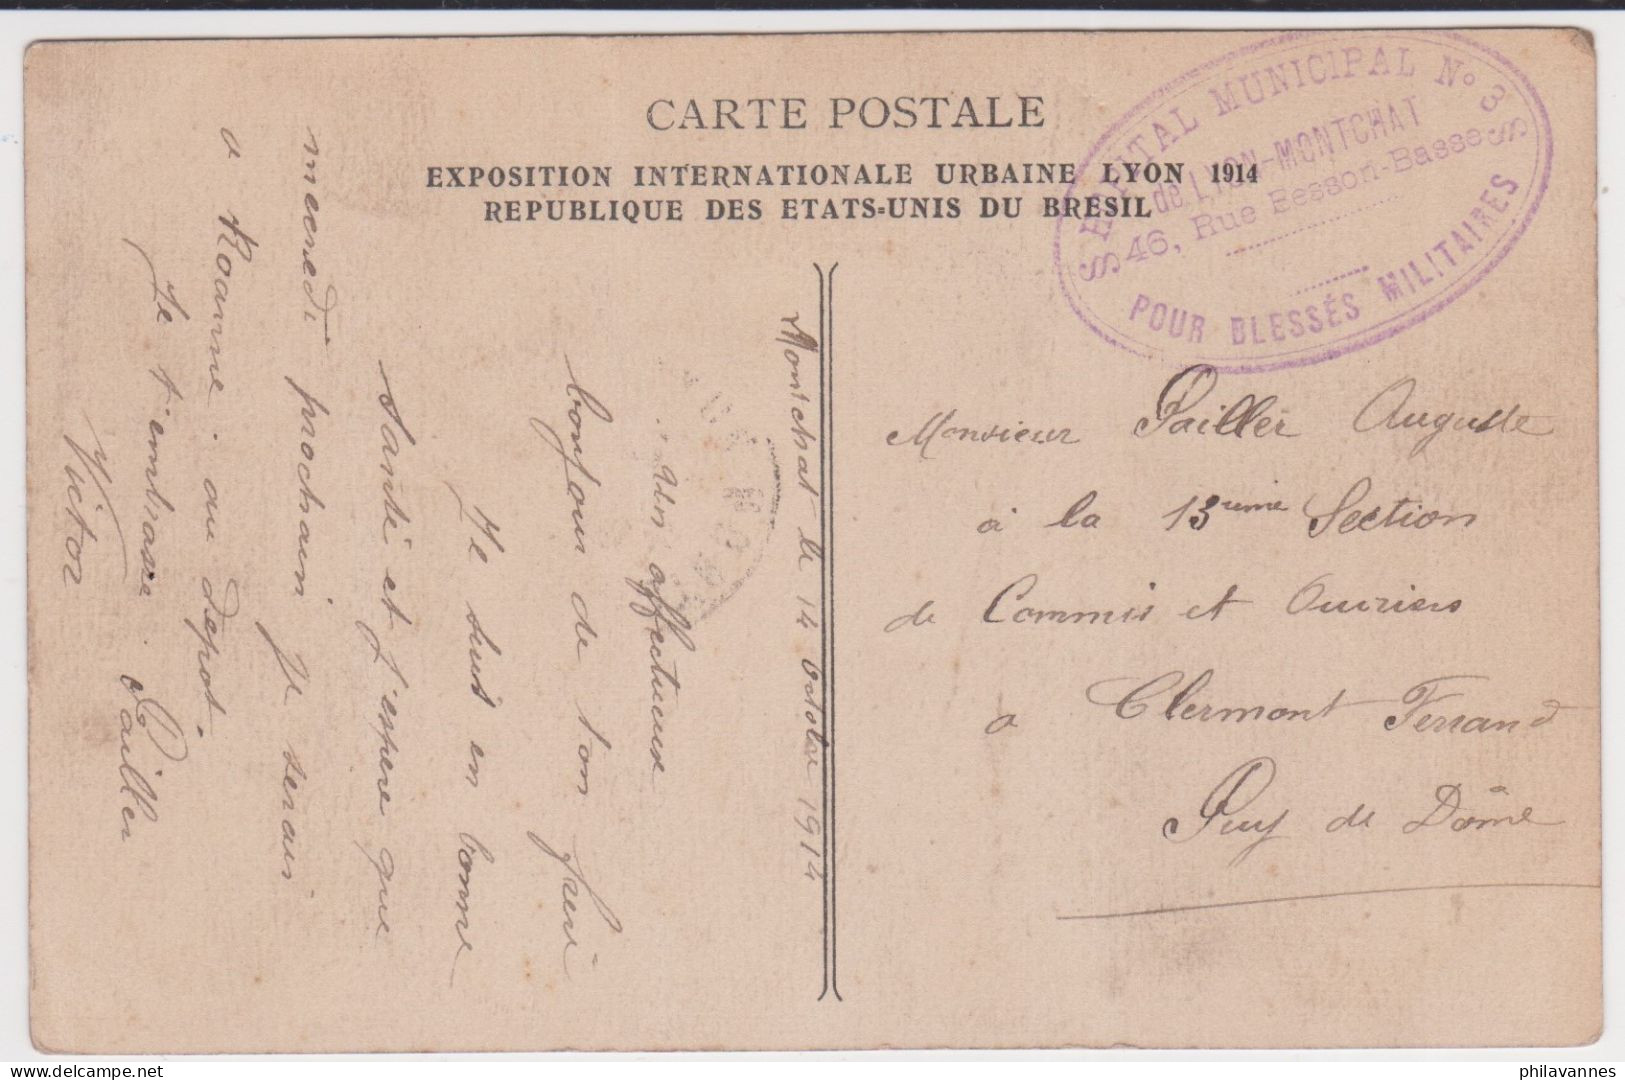 CARTE POSTALE
EXPOSITION INTERNATIONALE URBAINE LYON 1914
REPUBLIQUE DES ETATS-UNIS DU BRESIL
HOPITAL MUNICIPAL No 3
de LYON-MONTCHAT
46, Rue Besson-Basse
POUR BLESSÉS MILITAIRES
Montchat le 14 Octobre 1914
Un affectueux
bonjour de ton frère
Je suis en bonne
santé et j'espere que
mecredi prochain je serais
a Roanne au depot.
Je t'embrasse. Pailler
Victor
Monsieur Pailler Auguste
à la 13eme Section
de Commis et Ouvriers
a Clermont Ferrand
Puy de Dôme
delcampe.net
philavannes